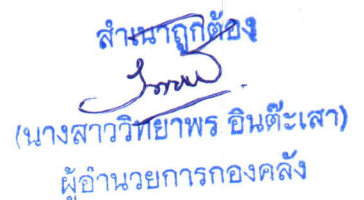 สำเนาถูกต้อง
(นางสาววิทยาพร อินต๊ะเสา)
ผู้อำนวยการกองคลัง